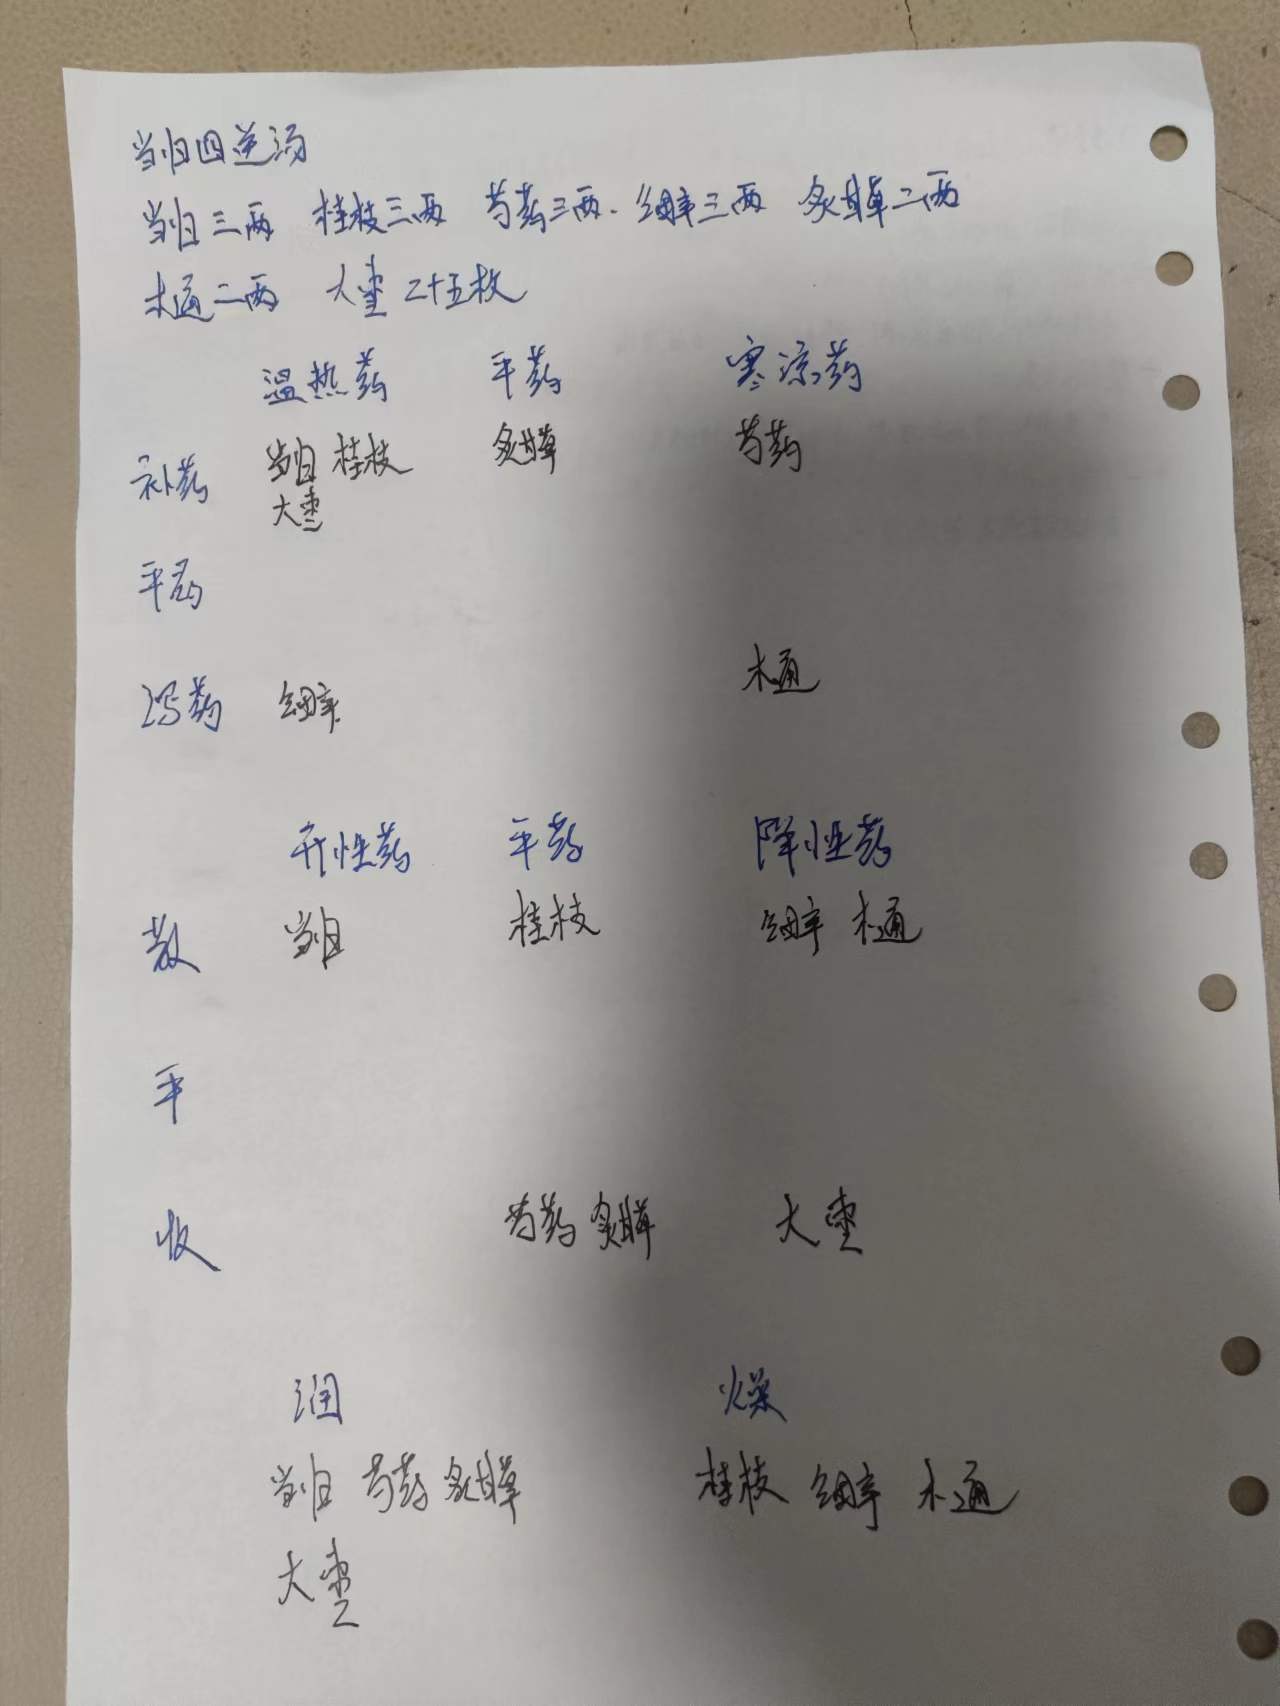 当归四逆汤
当归三两 桂枝三两 芍药三两. 细辛三两 炙甘草二两
木通二两 大枣二十五枚
温热药 平药 寒凉药
补药 当归 桂枝 炙甘草 芍药
大枣
平药
泻药 细辛 木通
升性药 平药 降性药
散 当归 桂枝 细辛 木通
平
收 芍药 炙甘草 大枣
润 燥
当归 芍药 炙甘草 桂枝 细辛 木通
大枣